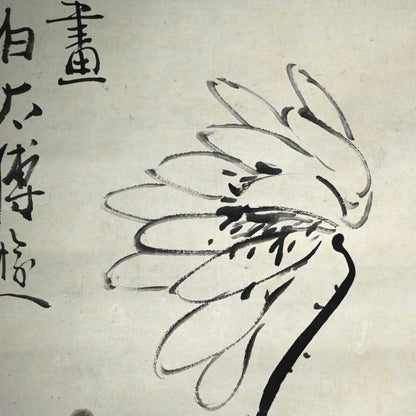 畫
白太傅